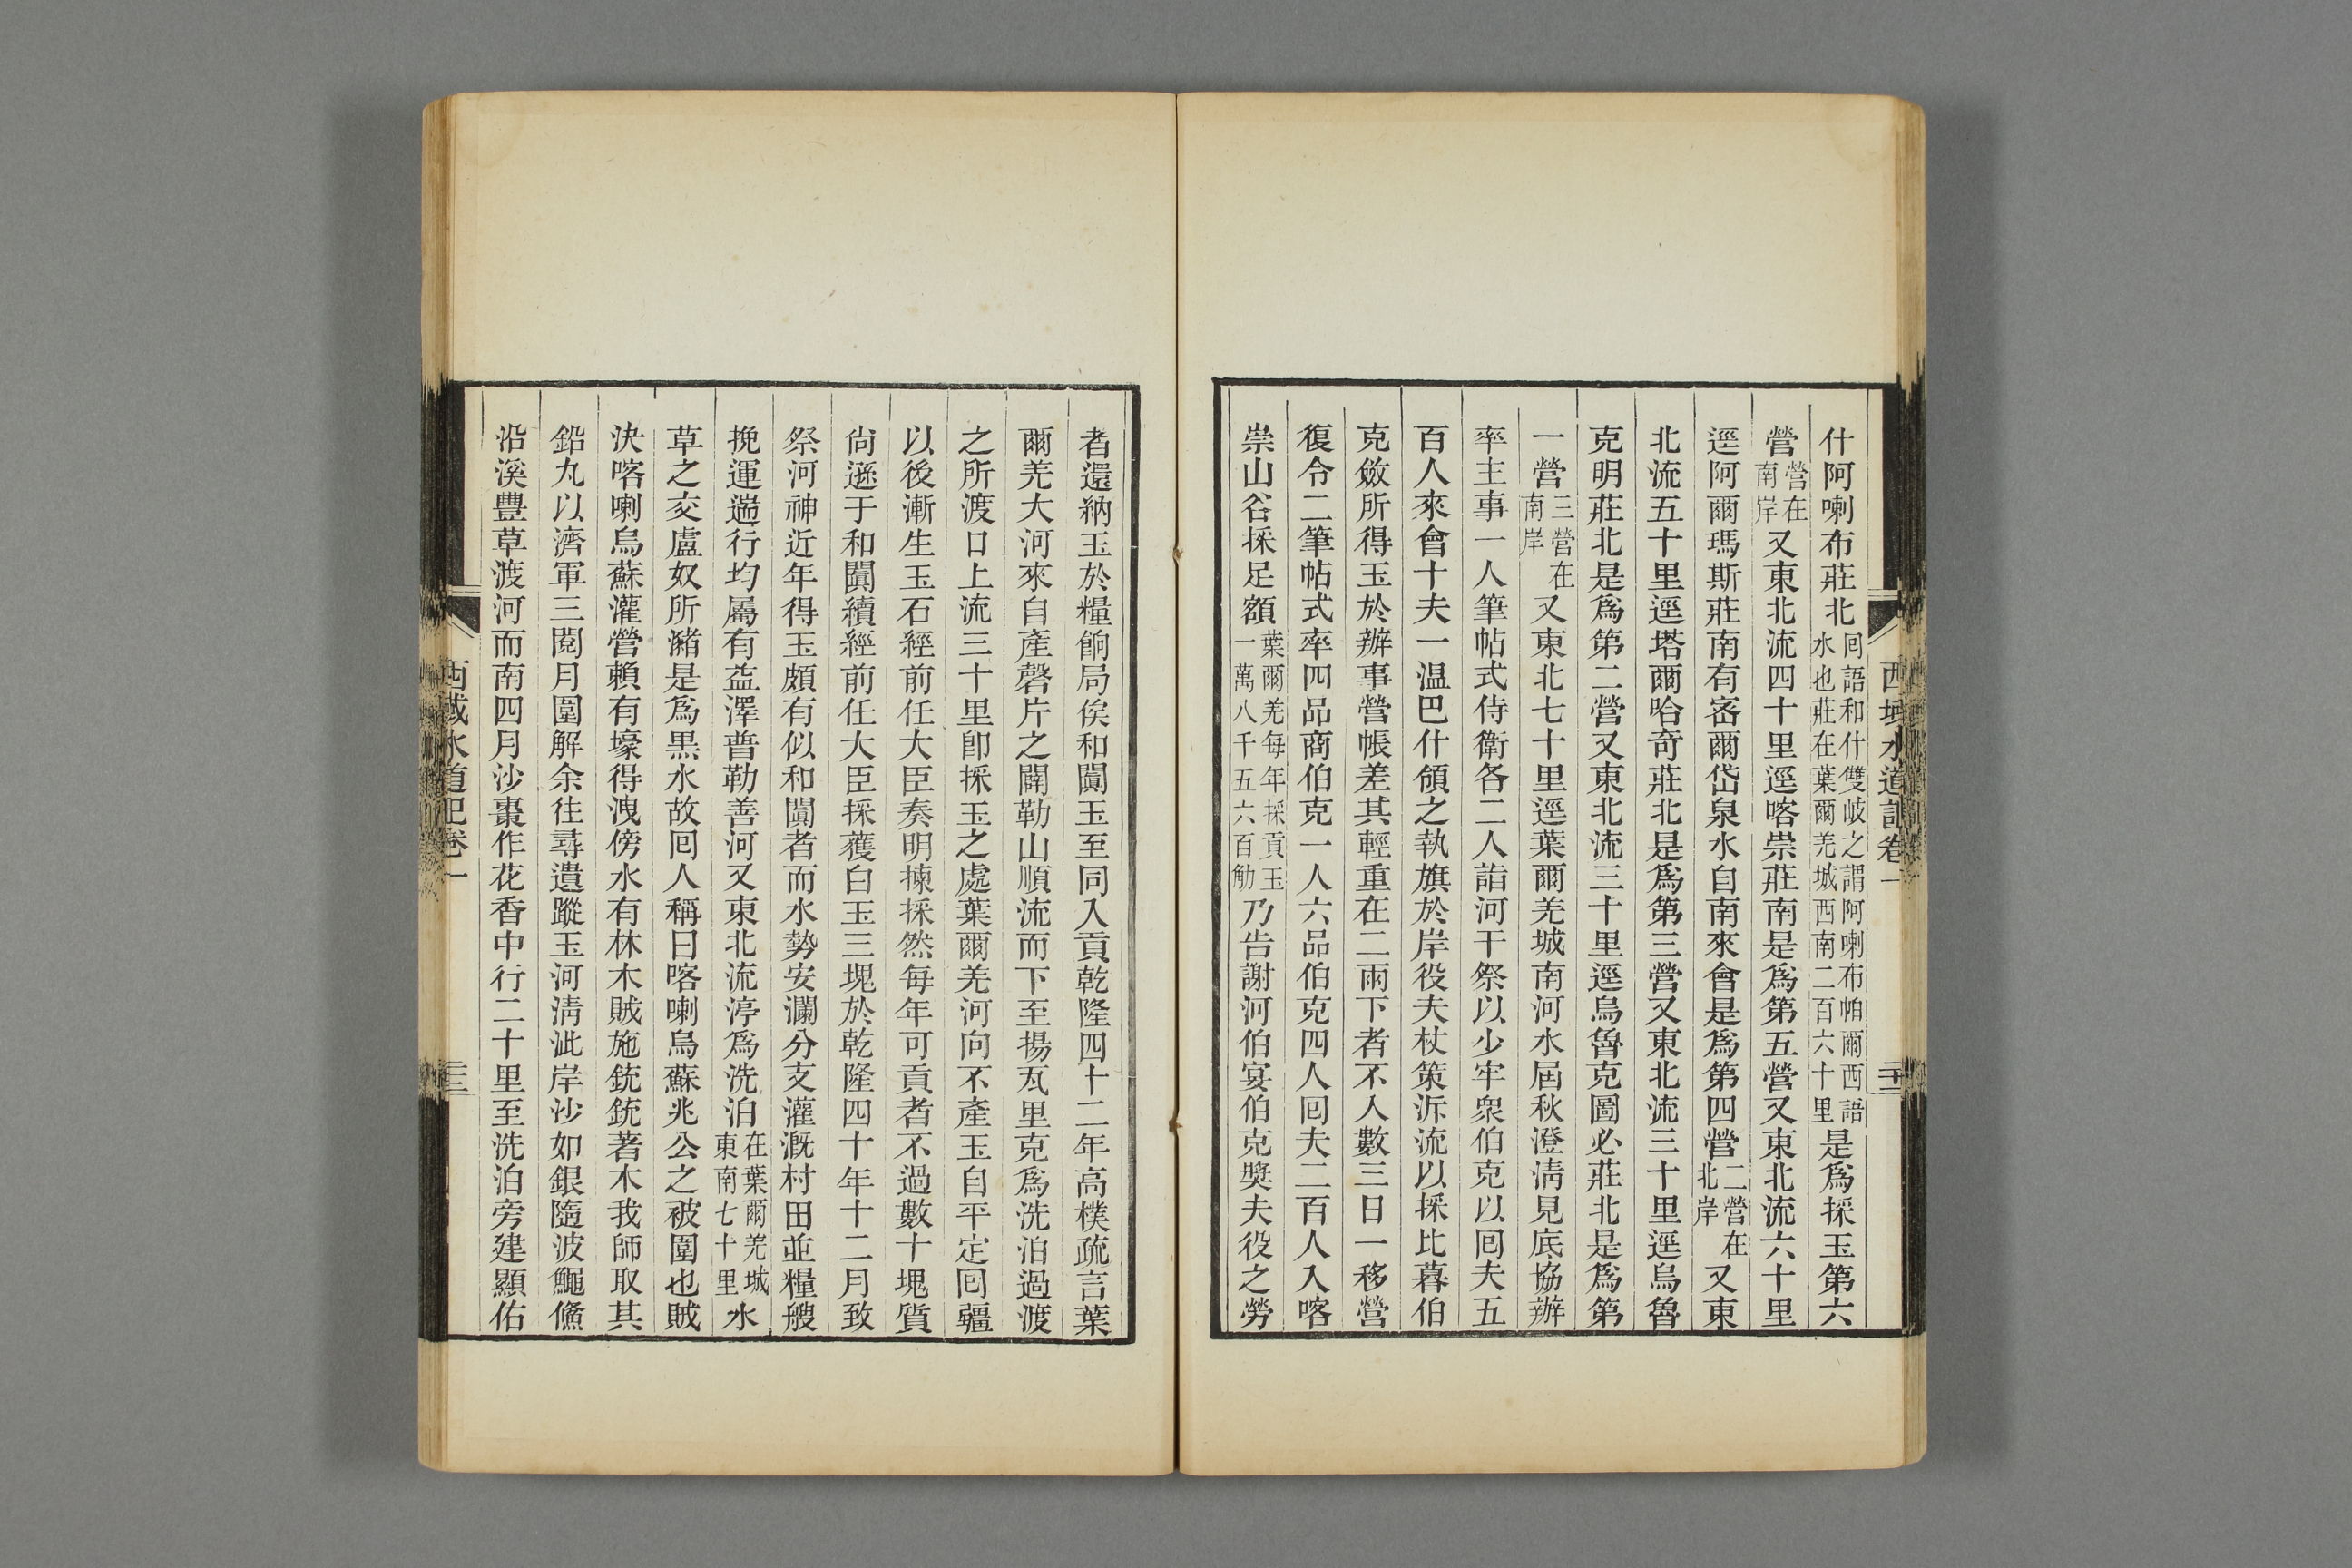 西域水道記卷一
二十二
什阿喇布莊北回語和什雙岐之謂阿喇布帕爾西語水也莊在葉爾羌城西南二百六十里是爲採玉第六
營營在南岸又東北流四十里逕喀崇莊南是爲第五營又東北流六十里
逕阿爾瑪斯莊南有密爾岱泉水自南來會是爲第四營二營在北岸又東
北流五十里逕塔爾哈奇莊北是爲第三營又東北流三十里逕烏魯
克明莊北是爲第二營又東北流三十里逕烏魯克圖必莊北是爲第
一營三營在南岸又東北七十里逕葉爾羌城南河水屆秋澄清見底協辦
率主事一人筆帖式侍衛各二人詣河干祭以少牢衆伯克以回夫五
百人來會十夫一温巴什領之執旗於岸役夫杖策泝流以採比暮伯
克斂所得玉於辦事營帳差其輕重在二兩下者不入數三日一移營
復令二筆帖式率四品商伯克一人六品伯克四人回夫二百人入喀
崇山谷採足額葉爾羌每年採貢玉一萬八千五六百觔乃告謝河伯宴伯克獎夫役之勞
者還納玉於糧餉局俟和闐玉至同入貢乾隆四十二年高樸疏言葉
爾羌大河來自產磬片之闢勒山順流而下至揚瓦里克爲洗泊過渡
之所渡口上流三十里卽採玉之處葉爾羌河向不產玉自平定回疆
以後漸生玉石經前任大臣奏明揀採然每年可貢者不過數十塊質
尙遜于和闐續經前任大臣採獲白玉三塊於乾隆四十年十二月致
祭河神近年得玉頗有似和闐者而水勢安瀾分支灌漑村田並糧艘
挽運遄行均屬有益澤普勒善河又東北流渟爲洗泊在葉爾羌城東南七十里水
草之交盧奴所瀦是爲黑水故回人稱曰喀喇烏蘇兆公之被圍也賊
決喀喇烏蘇灌營賴有壕得洩傍水有林木賊施銃銃著木我師取其
鉛丸以濟軍三閱月圍解余往尋遺蹤玉河淸泚岸沙如銀隨波鱦鱦
沿溪豐草渡河而南四月沙棗作花香中行二十里至洗泊旁建顯佑
西域水道記卷一